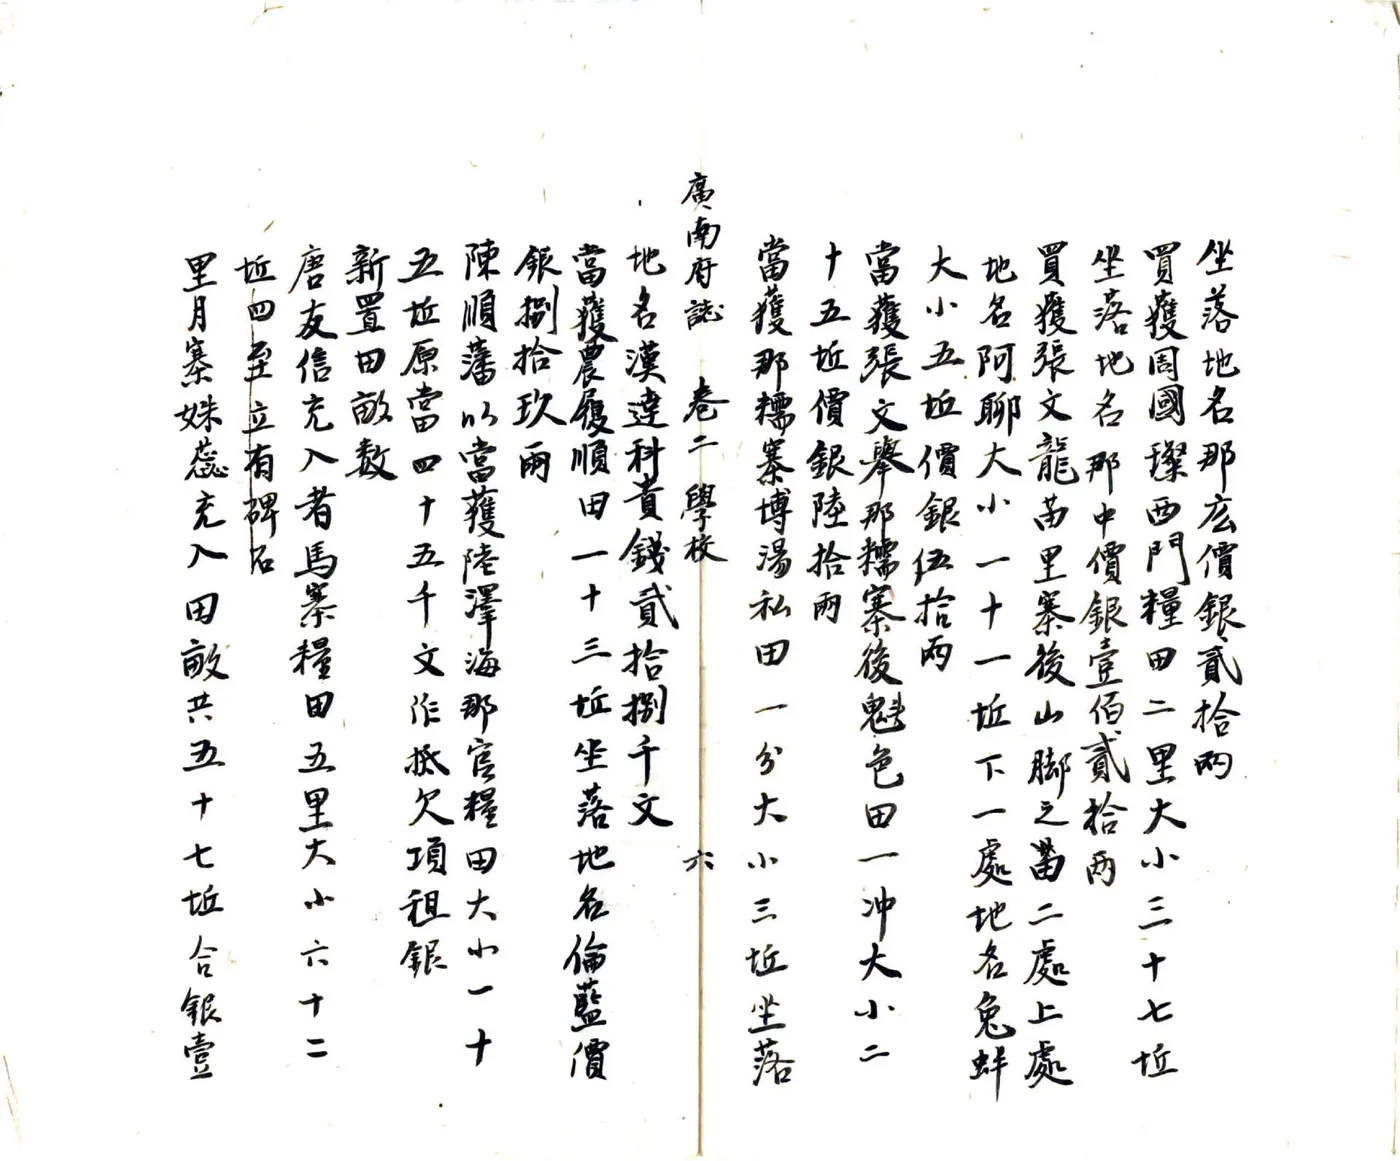 坐落地名那庅價銀貳拾兩
買獲周國璨西門糧田二里大小三十七坵
坐落地名那中價銀壹佰貳拾兩
買獲張文龍苗里寨後山脚之畨二處上處
地名阿聊大小一十一坵下一處地名兔蚌
大小五坵價銀伍拾兩
當獲張文舉那糯寨後魁色田一冲大小二
十五坵價銀陸拾兩
當獲那糯寨博湯私田一分大小三坵坐落
廣南府誌 卷二 學校 六
地名漢達科責錢貳拾捌千文
當獲農履順田一十三坵坐落地名倫藍價
銀捌拾玖兩
陳順藩以當獲陸澤海那官糧田大小一十
五坵原當四十五千文作抵欠項租銀
新置田畝数
唐友信充入者馬寨糧田五里大小六十二
坵四至立有碑石
里月寨姝蕊充入田畝共五十七坵合銀壹